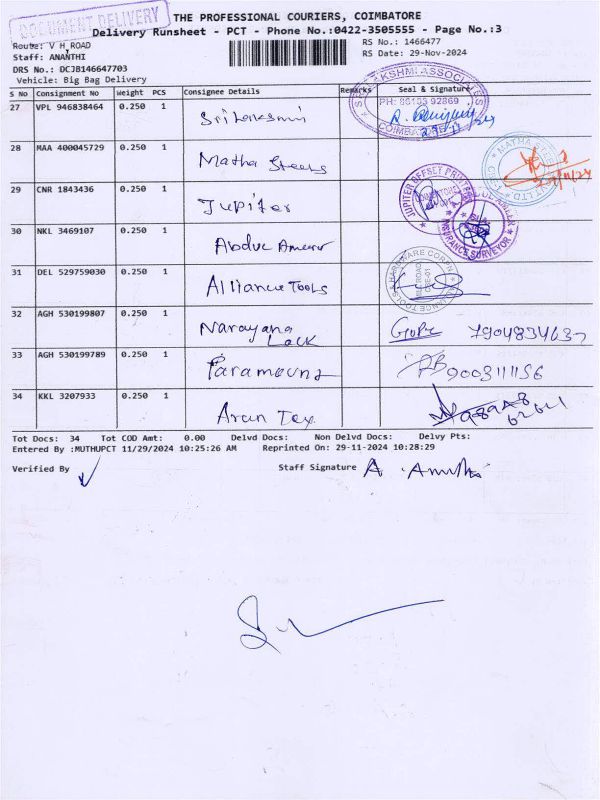 DOCUMENT DELIVERY
THE PROFESSIONAL COURIERS, COIMBATORE
Delivery Runsheet - PCT - Phone No.:0422-3505555 - Page No.:3
Route: V H ROAD
RS No.: 1466477
Staff: ANANTHI
RS Date: 29-Nov-2024
DRS No.: DCJB146647703
Vehicle: Big Bag Delivery
S No Consignment No Weight PCS Consignee Details Remarks Seal & Signature
27 VPL 946838464 0.250 1 Sri Lakshmi
SRI LAKSHMI ASSOCIATES
PH: 86103 92869
COIMBATORE
28 MAA 400045729 0.250 1 Matha Steels
29 CNR 1843436 0.250 1 Jupiter
JUPITER OFFSET PRINTERS
INSURANCE SURVEYOR
30 NKL 3469107 0.250 1 Abdul Ameer
31 DEL 529759030 0.250 1 Alliance Tools
ALLIANCE TOOLS & HARDWARE CORPN
32 AGH 530199807 0.250 1 Narayana Lack Gopi 7904834637
33 AGH 530199789 0.250 1 Paramount 9003111156
34 KKL 3207933 0.250 1 Arun Tex
Tot Docs: 34 Tot COD Amt: 0.00 Delvd Docs: Non Delvd Docs: Delvy Pts:
Entered By :MUTHUPCT 11/29/2024 10:25:26 AM Reprinted On: 29-11-2024 10:28:29
Verified By Staff Signature